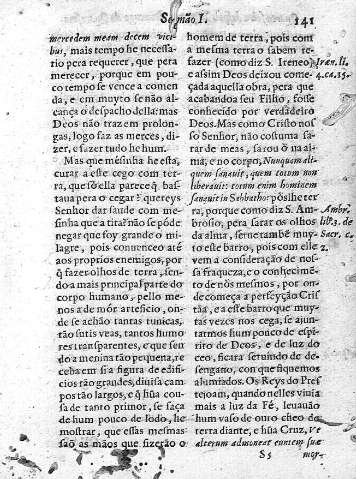 Sermão I.
141
mercedem meam decem viri-
bus, mais tempo he necessa-
rio pera requerer, que pera
merecer, porque em pou-
co tempo se vence a comen-
da, e em muyto se não al-
cança o despacho della: mas
Deos não traz em prolon-
gas, logo faz as merces, di-
zer, e fazer tudo he hum.
Mas que mésinha he esta,
curar a este cego com ter-
ra, que só ella parece q̃ bas-
taua pera o cegar? quereys
Senhor dar saude com me-
sinha que a tira? não se póde
negar que foy grande o mi-
lagre, pois conuenceo até
aos proprios enemigos, por
q̃ fazer olhos de terra, sen-
do a mais principal parte do
corpo humano, pello me-
nos a de mór artificio, on-
de se achão tantas tunicas,
tão sutis veas, tantos humo
res transparentes, e que sen
do a menina tão pequena, re
ceba em si a figura de edifi-
cios tão grandes, diuisa cam
pos tão largos, e q̃ hũa cou-
sa de tanto primor, se faça
de hum pouco de lodo, he
mostrar, que essas mesmas
são as mãos que fizerão o
homem de terra, pois com
a mesma terra o sabem re-
fazer (como diz S. Ireneo)
e assim Deos deixou come-
çada aquella obra, pera que
acabandoa seu Filho, fosse
conhecido por verdadeiro
Deos. Mas como Christo nos-
so Senhor, não costuma sa-
rar de meas, sarou ó na al-
ma, e no corpo, Nunquam ali-
quem sanauit, quem totum non
liberauit: totum enim hominem
sanauit in Sabbatho: pos lhe ter
ra, porque como diz S. Am-
brosio, pera sarar os olhos
da alma, se necambé muy-
to este barro, pois com elle
vem a consideração de nos-
sa fraqueza, e o conhecimé-
to de nòs mesmos, por on-
de começa a perfeyção Cris
tãa, e a esse barro que muy-
tas vezes nos cega, se ajun-
tarmos hum pouco de espi-
rito de Deos, e de luz do
ceo, ficara seruindo de de-
sengano, com que fiquemos
alumiados. Os Reys do Pres
te Joam, quando nelles viuia
mais a luz da Fé, leuauão
hum vaso de ouro cheo de
terra diante, e hũa Cruz, Vt
alterum admoneat eumem suæ
Iræn. li.
4. ca. 15.
Ambr.
lib. 3. de
Sacr. c.
2.
S 5
mor-